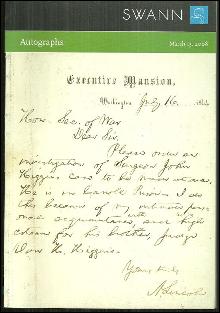 SWANN
Autographs
March 13, 2008
Executive Mansion,
Washington, July 16, 186
Hon. Sec. of War
Dear Sir,
Please order an
investigation of Surgeon John
Higgins case to be made
He is in Carroll Prison. I do
this because of my intimate per-
sonal acquaintance with and high
esteem for his brother, Judge
Van H. Higgins.
Yours truly
A. Lincoln